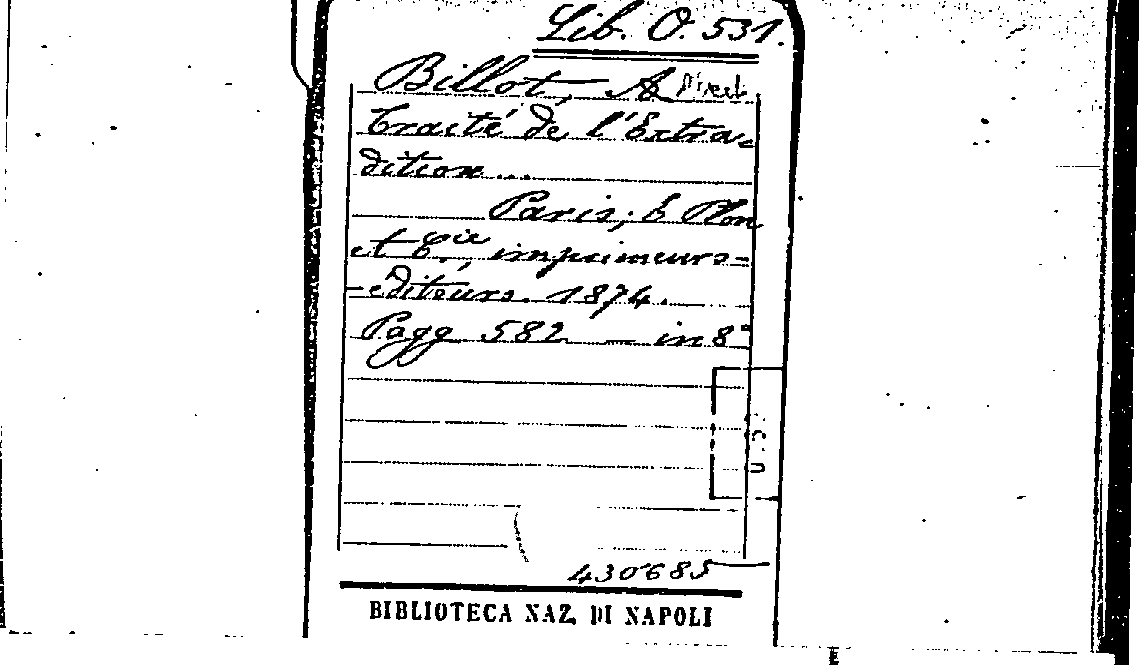 Lib. O. 531.
Billot, A
Traité de l'Extra-
dition...
Paris, E Plon
et Cie, imprimeurs-
-editeurs. 1874.
Pagg 582 — in 8°
430685
BIBLIOTECA NAZ. DI NAPOLI